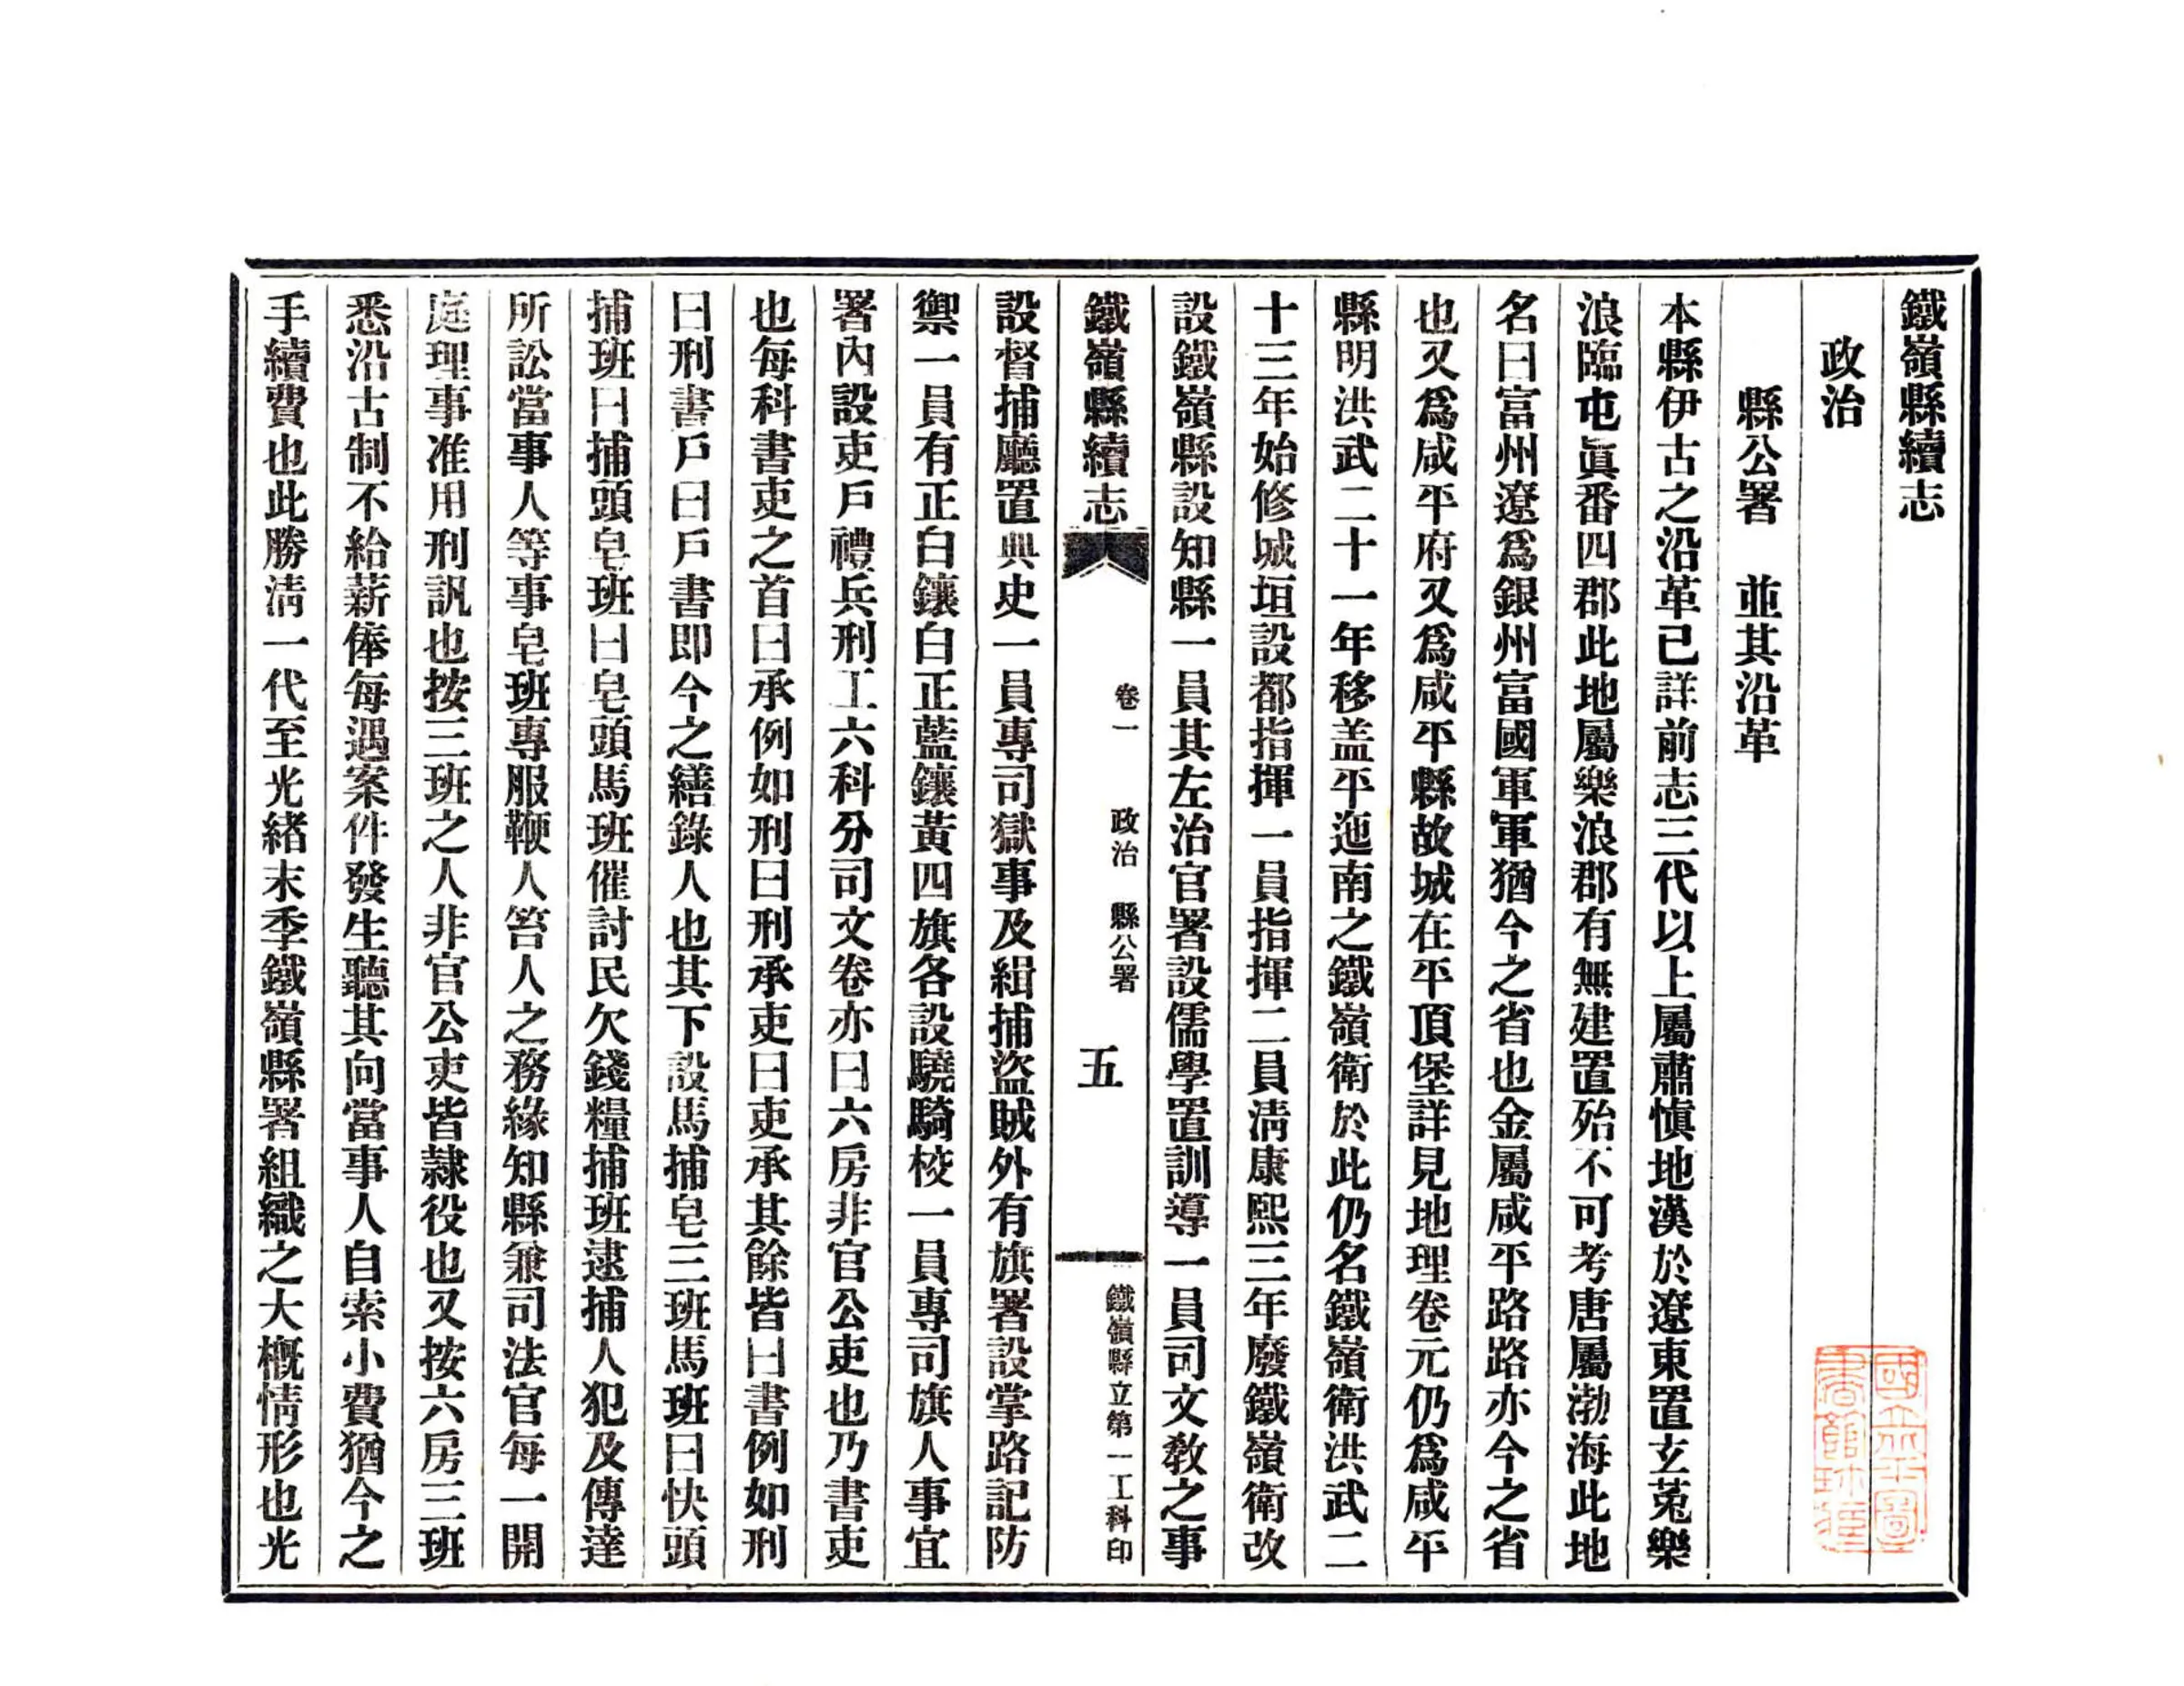 鐵嶺縣續志
政治
縣公署　並其沿革
本縣伊古之沿革已詳前志三代以上屬肅慎地漢於遼東置玄菟樂
浪臨屯眞番四郡此地屬樂浪郡有無建置殆不可考唐屬渤海此地
名曰富州遼爲銀州富國軍軍猶今之省也金屬咸平路路亦今之省
也又爲咸平府又爲咸平縣故城在平頂堡詳見地理卷元仍爲咸平
縣明洪武二十一年移盖平迤南之鐵嶺衛於此仍名鐵嶺衛洪武二
十三年始修城垣設都指揮一員指揮二員淸康熙三年廢鐵嶺衛改
設鐵嶺縣設知縣一員其左治官署設儒學置訓導一員司文教之事
鐵嶺縣續志
卷一
政治　縣公署
五
鐵嶺縣立第一工科印
設督捕廳置典史一員專司獄事及緝捕盜賊外有旗署設掌路記防
禦一員有正白鑲白正藍鑲黃四旗各設驍騎校一員專司旗人事宜
署內設吏戶禮兵刑工六科分司文卷亦曰六房非官公吏也乃書吏
也每科書吏之首曰承例如刑曰刑承吏曰吏承其餘皆曰書例如刑
曰刑書戶曰戶書即今之繕錄人也其下設馬捕皂三班馬班曰快頭
捕班曰捕頭皂班曰皂頭馬班催討民欠錢糧捕班逮捕人犯及傳達
所訟當事人等事皂班專服鞭人笞人之務緣知縣兼司法官每一開
庭理事准用刑訊也按三班之人非官公吏皆隷役也又按六房三班
悉沿古制不給薪俸每遇案件發生聽其向當事人自索小費猶今之
手續費也此勝淸一代至光緒末季鐵嶺縣署組織之大概情形也光